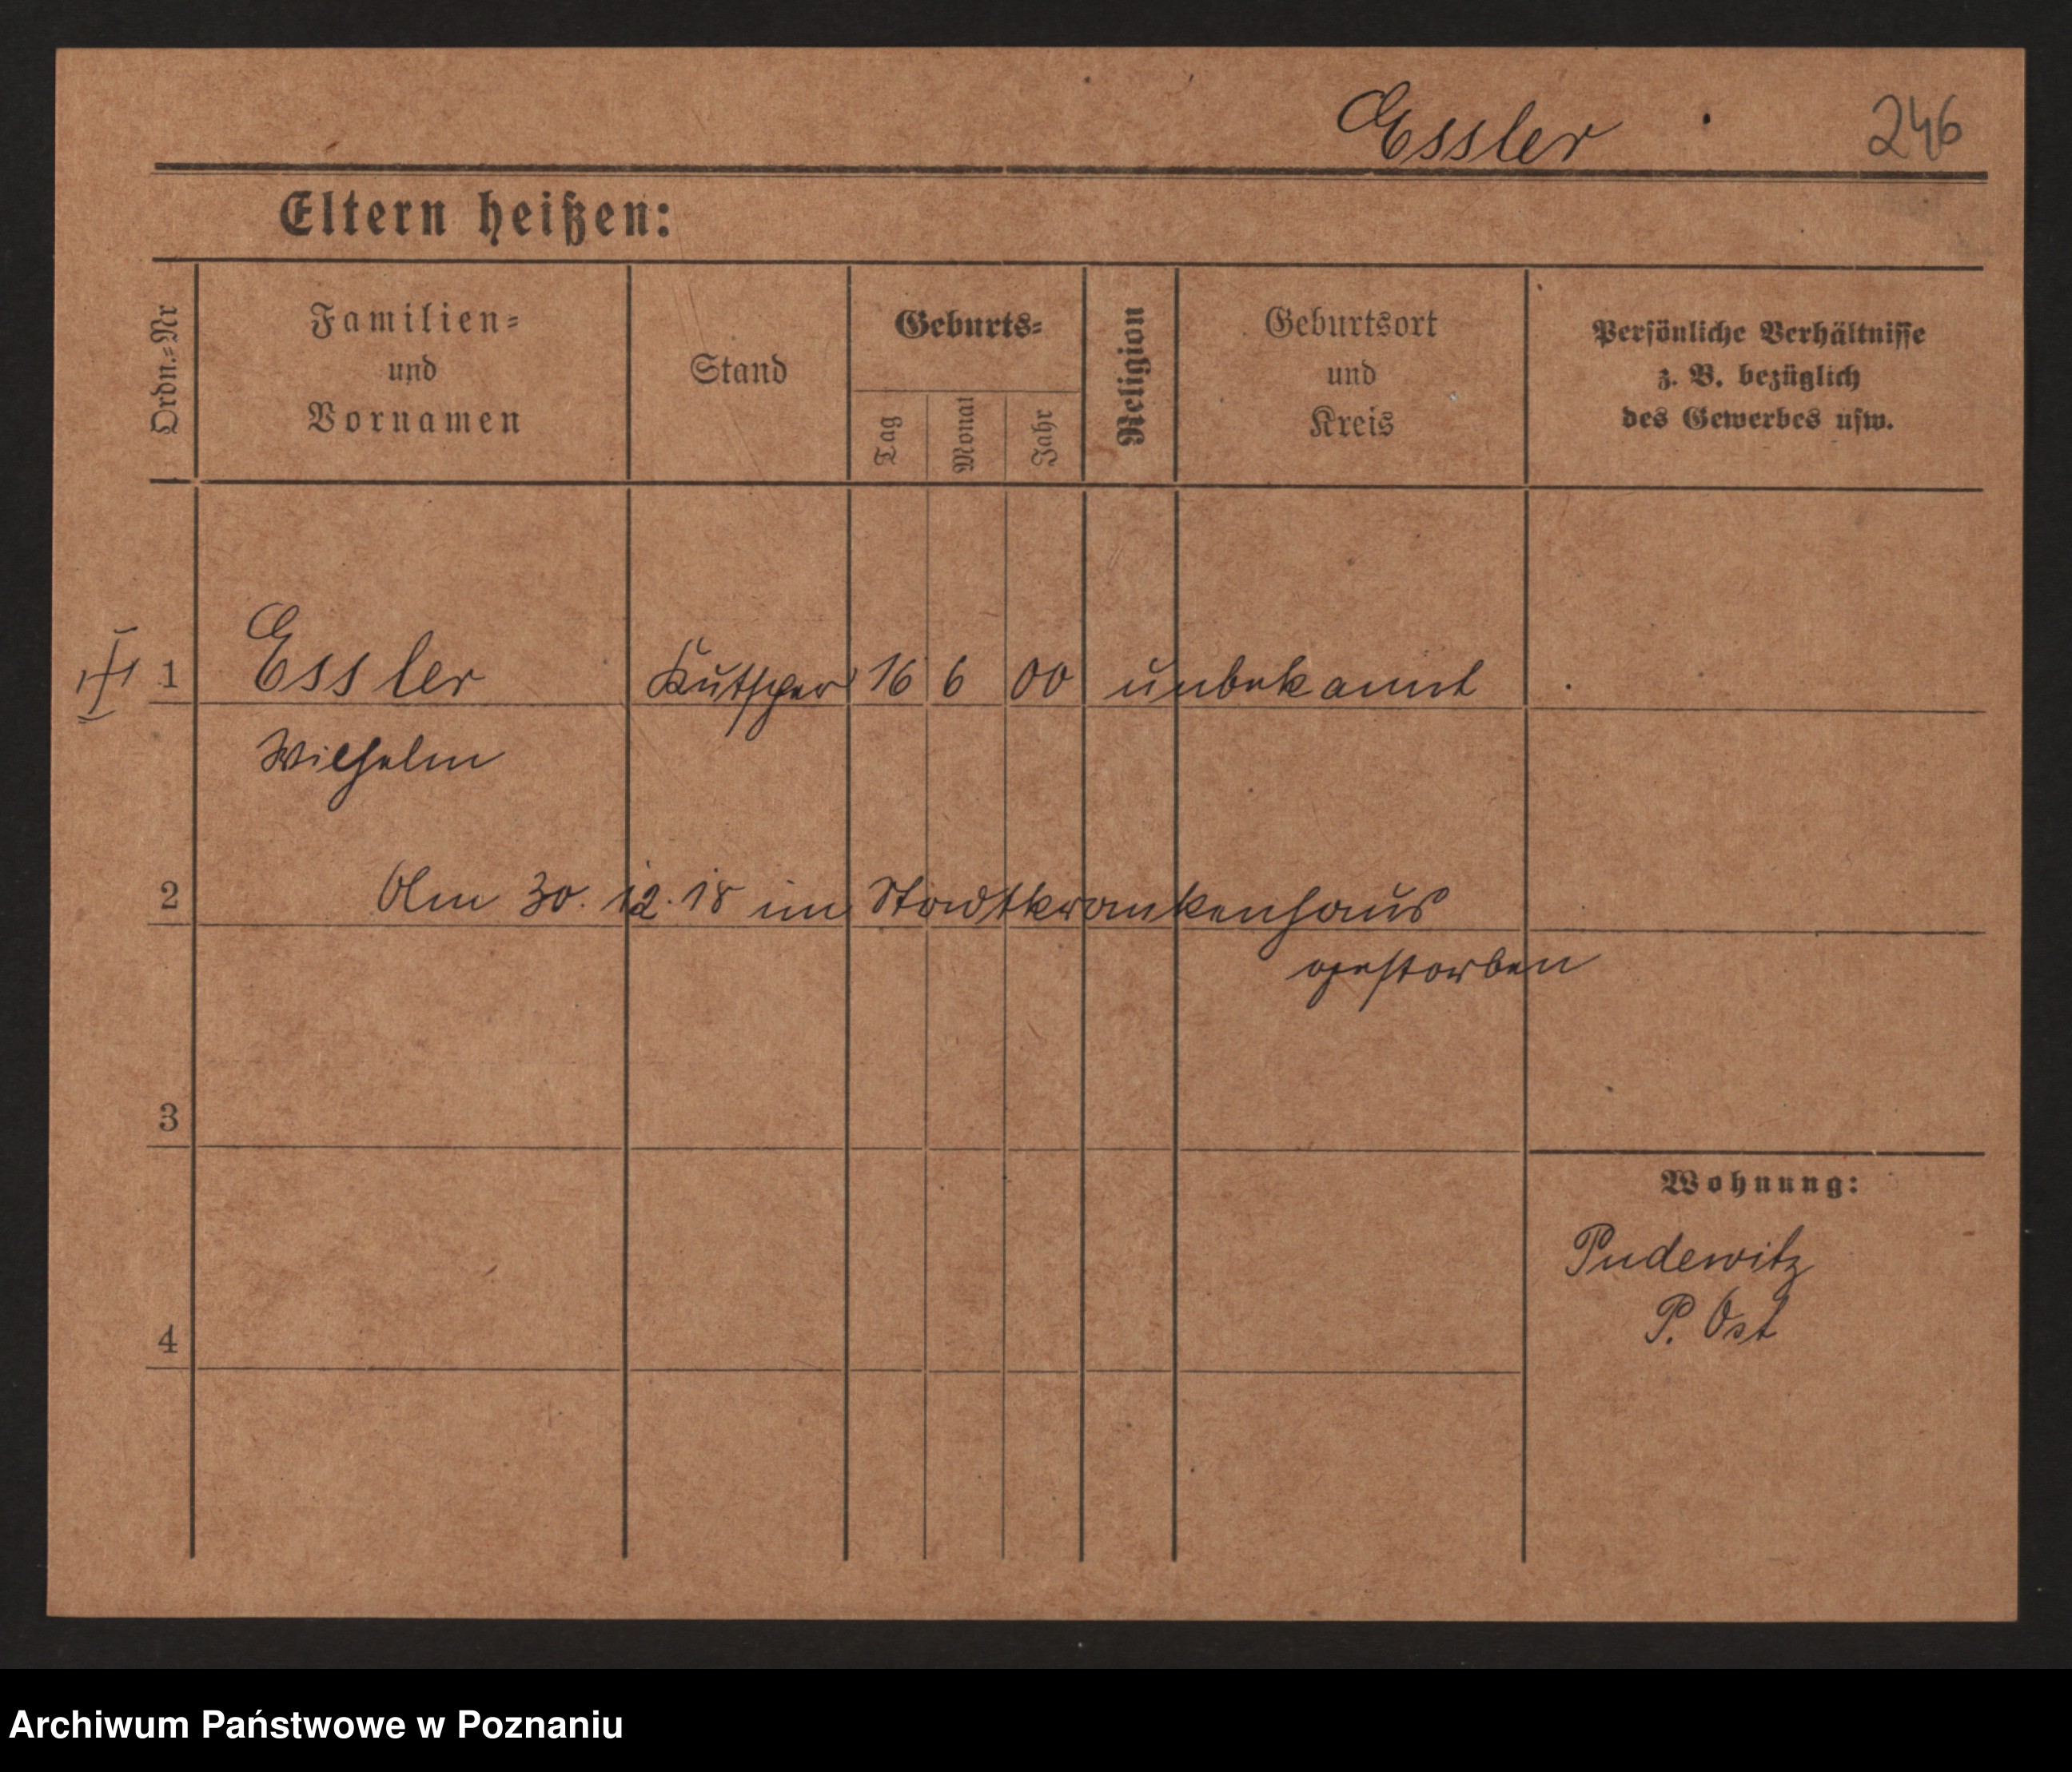 Essler
246
Eltern heißen:
Ordn.-Nr
Familien-
und
Vornamen
Stand
Geburts-
Tag
Monat
Jahr
Religion
Geburtsort
und
Kreis
Persönliche Verhältnisse
z. B. bezüglich
des Gewerbes usw.
1 Essler Kutscher 16 6 00 unbekannt
Wilhelm
2 Am 30. 12. 18 im Stadtkrankenhaus
gestorben
3
Wohnung:
Pudewitz
P. Ost
4
Archiwum Państwowe w Poznaniu